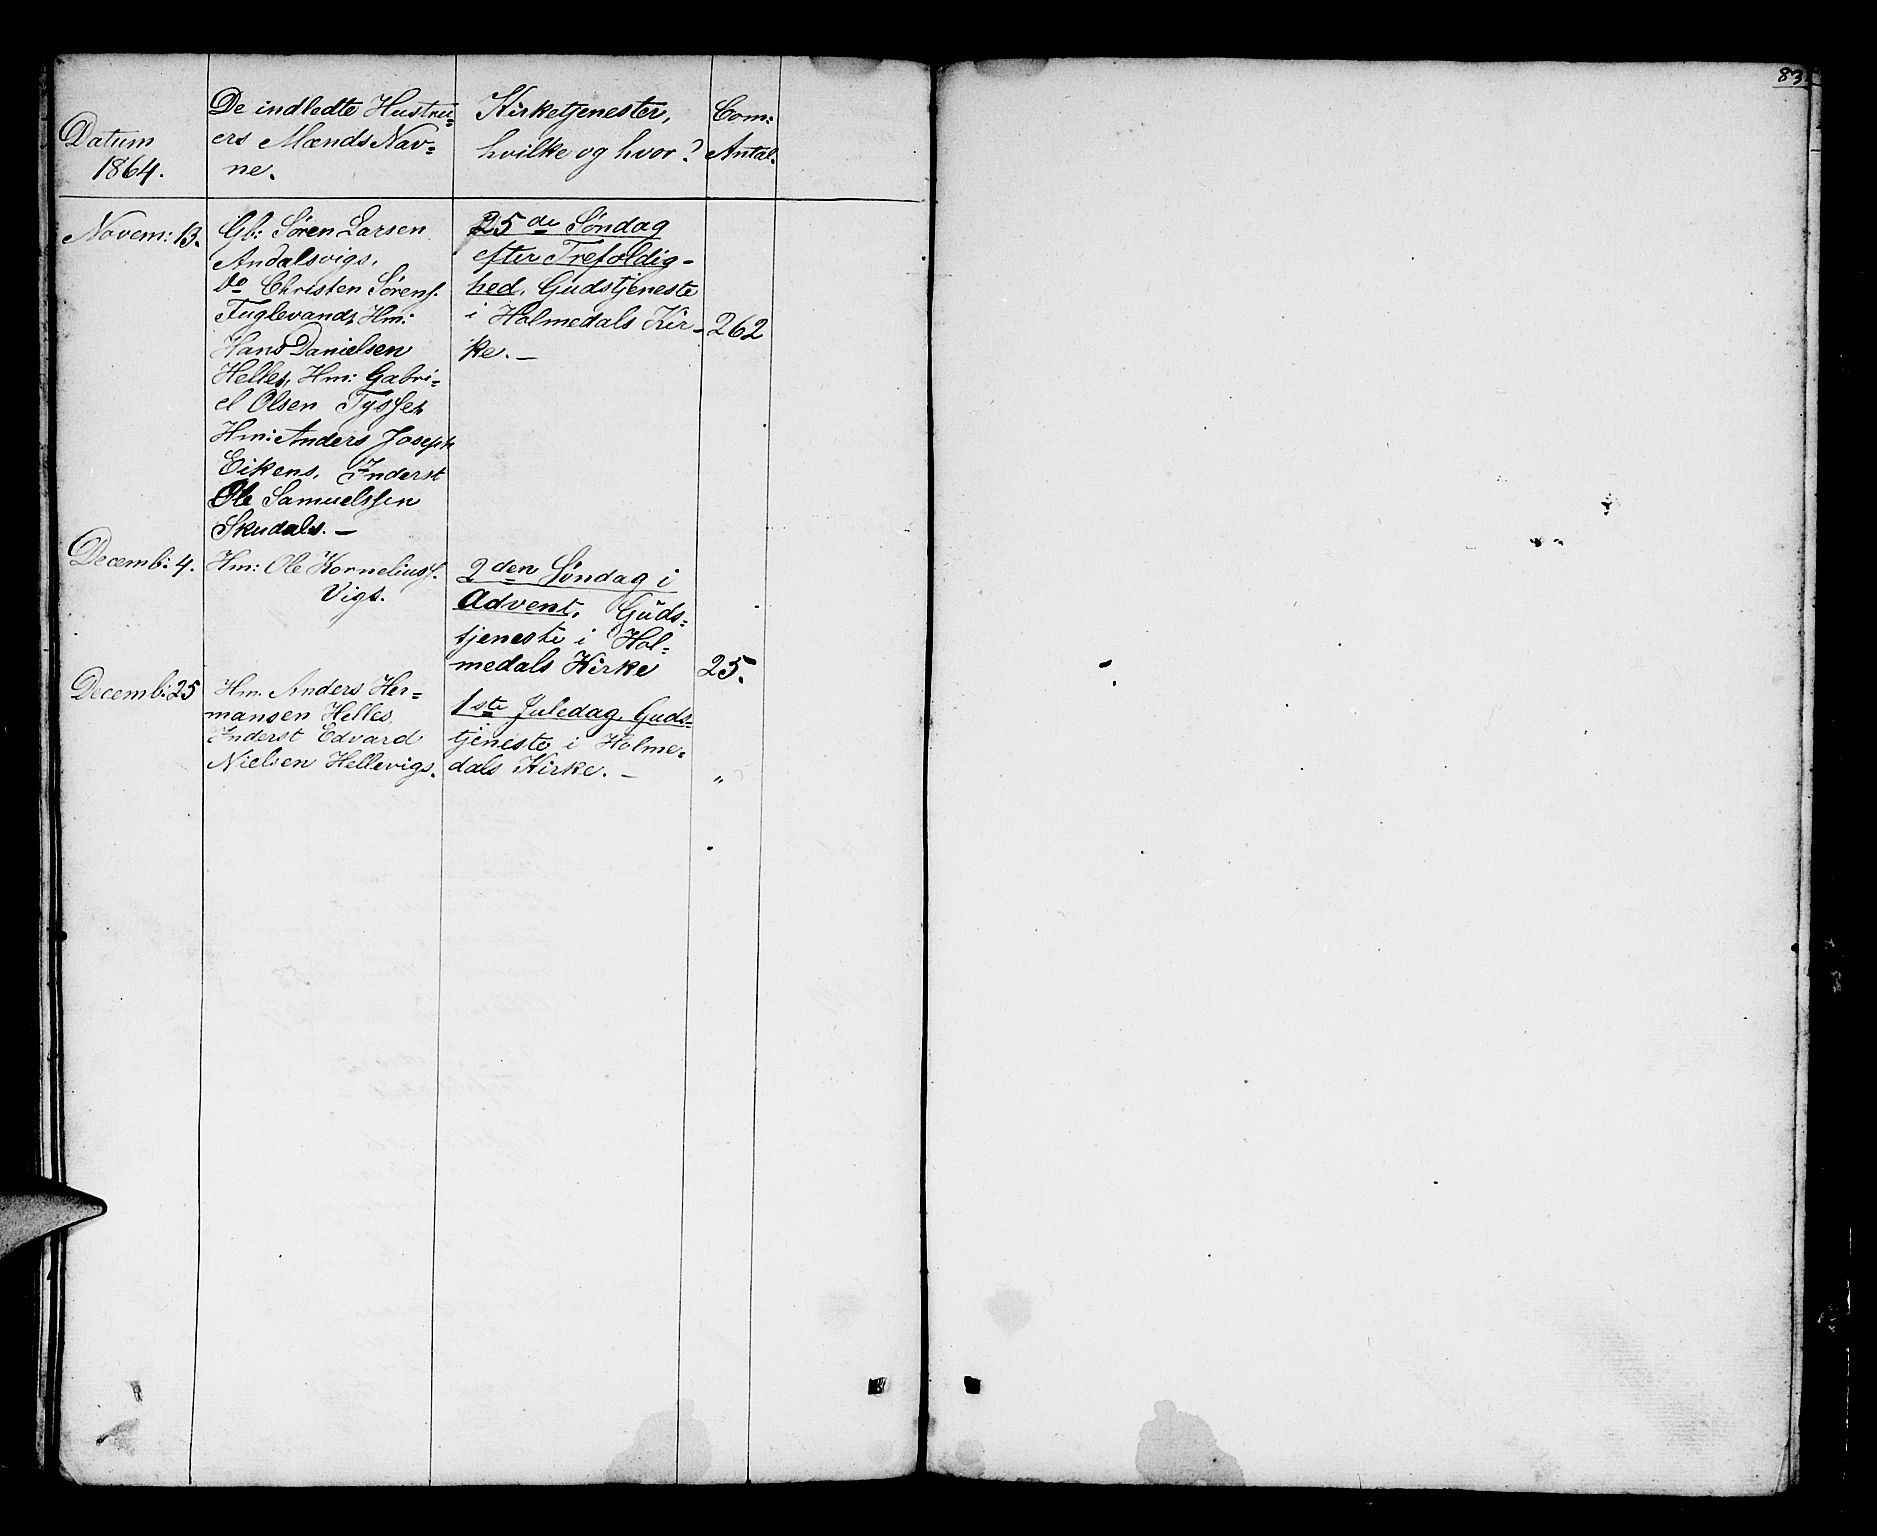 83.
Datum
1864.
De indledte Hustru=
ers Mænds Nav=
ne.
Kirketjenester,
hvilke og hvor?
Com:
Antal.
Novem: 13.
Gb: Søren Larsen
Andalsvigs,
Do Christen Sørens.
Fuglevands, Hm:
Hans Danielsen
Helles, Hm: Gabri=
el Olsen Tysses
Hm: Anders Joseph
Eikens, Inderst
Ole Samuelssen
Skudals. —
25de Søndag
efter Trefoldig=
hed, Gudstjeneste
i Holmedals Kir=
ke. —
262
Decemb: 4.
Hm: Ole Kornelius.
Vigs.
2den Søndag i
Advent, Guds=
tjeneste i Hol=
medals Kirke
25.
Decemb: 25
Hm. Anders Her=
mansen Helles,
Inderst Edvard
Nielsen Hellevigs.
1ste Juledag. Guds=
tjeneste i Holme=
dals Kirke. —
"